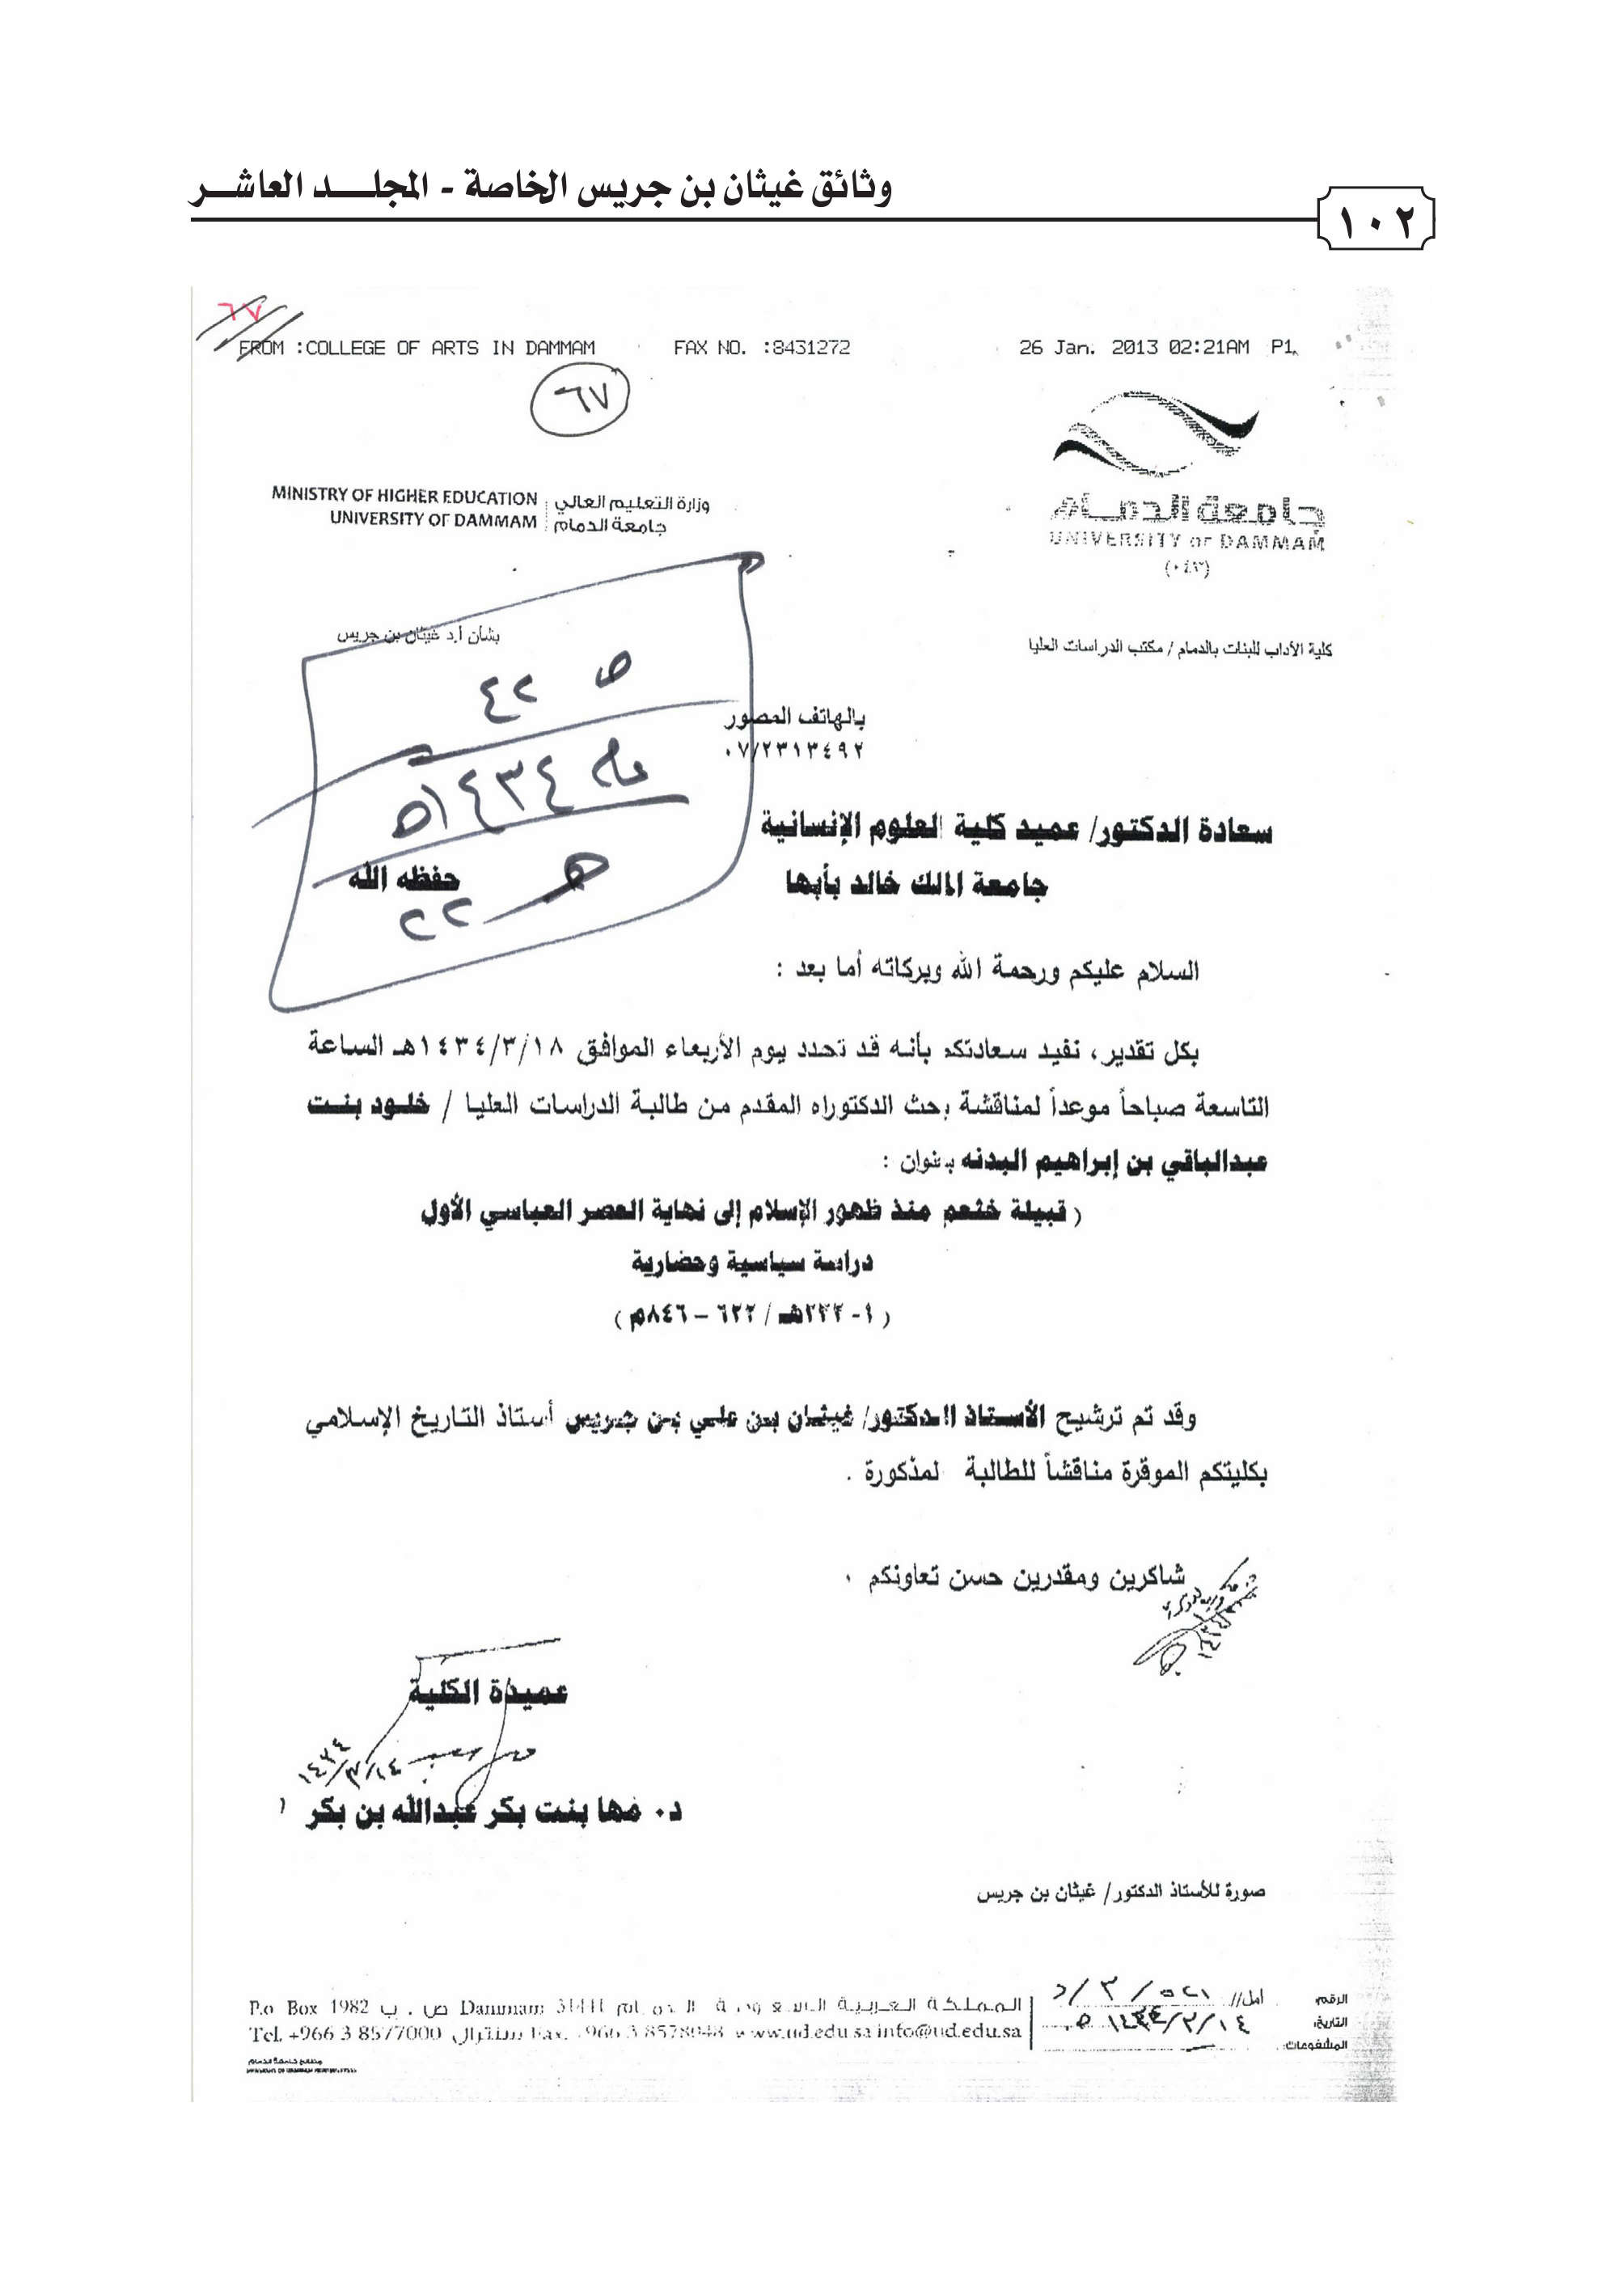 وثائق غيثان بن جريس الخاصة - المجلـــد العاشــر
١٠٢
٦٧
FROM :COLLEGE OF ARTS IN DAMMAM FAX NO. :8431272 26 Jan. 2013 02:21AM P1
٦٧
جامعة الدمـام
UNIVERSITY OF DAMMAM
(٠٤٣)
MINISTRY OF HIGHER EDUCATION وزارة التعليم العالي
UNIVERSITY OF DAMMAM جامعة الدمام
كلية الآداب للبنات بالدمام / مكتب الدراسات العليا
بشأن أ.د غيثان بن جريس
ص ٤٢
عام ١٤٣٤هـ
هـ ٢٢
بالهاتف المصور
٠٧/٢٣١٣٤٩٢
سعادة الدكتور/ عميد كلية العلوم الإنسانية
جامعة الملك خالد بأبها حفظه الله
السلام عليكم ورحمة الله وبركاته أما بعد :
بكل تقدير، نفيد سعادتكم بأنه قد تحدد يوم الأربعاء الموافق ١٤٣٤/٣/١٨هـ الساعة
التاسعة صباحاً موعداً لمناقشة بحث الدكتوراه المقدم من طالبة الدراسات العليا / خلـود بنـت
عبدالباقي بن إبراهيم البدنه بعنوان :
( قبيلة خثعم منذ ظهور الإسلام إلى نهاية العصر العباسي الأول
دراسة سياسية وحضارية
( ١- ٢٣٢هـ / ٦٢٢ – ٨٤٦م )
وقد تم ترشيح الأستاذ الدكتور/ غيثان بن علي بن جريس أستاذ التاريخ الإسلامي
بكليتكم الموقرة مناقشاً للطالبة لمذكورة .
شاكرين ومقدرين حسن تعاونكم .
عميدة الكلية
١٤٣٤/٣/١٤
د. مها بنت بكر عبدالله بن بكر
صورة للأستاذ الدكتور/ غيثان بن جريس
الرقم:
التاريخ: ١٤٣٤/٣/١٤هـ
المشفوعات:
المملكة العربية السعودية الدمام Dammam 31441 ص . ب P.o Box 1982
Tel. +966 3 8577000 سنترال Fax. +966 3 8578048 www.ud.edu.sa info@ud.edu.sa
مطابع جامعة الدمام